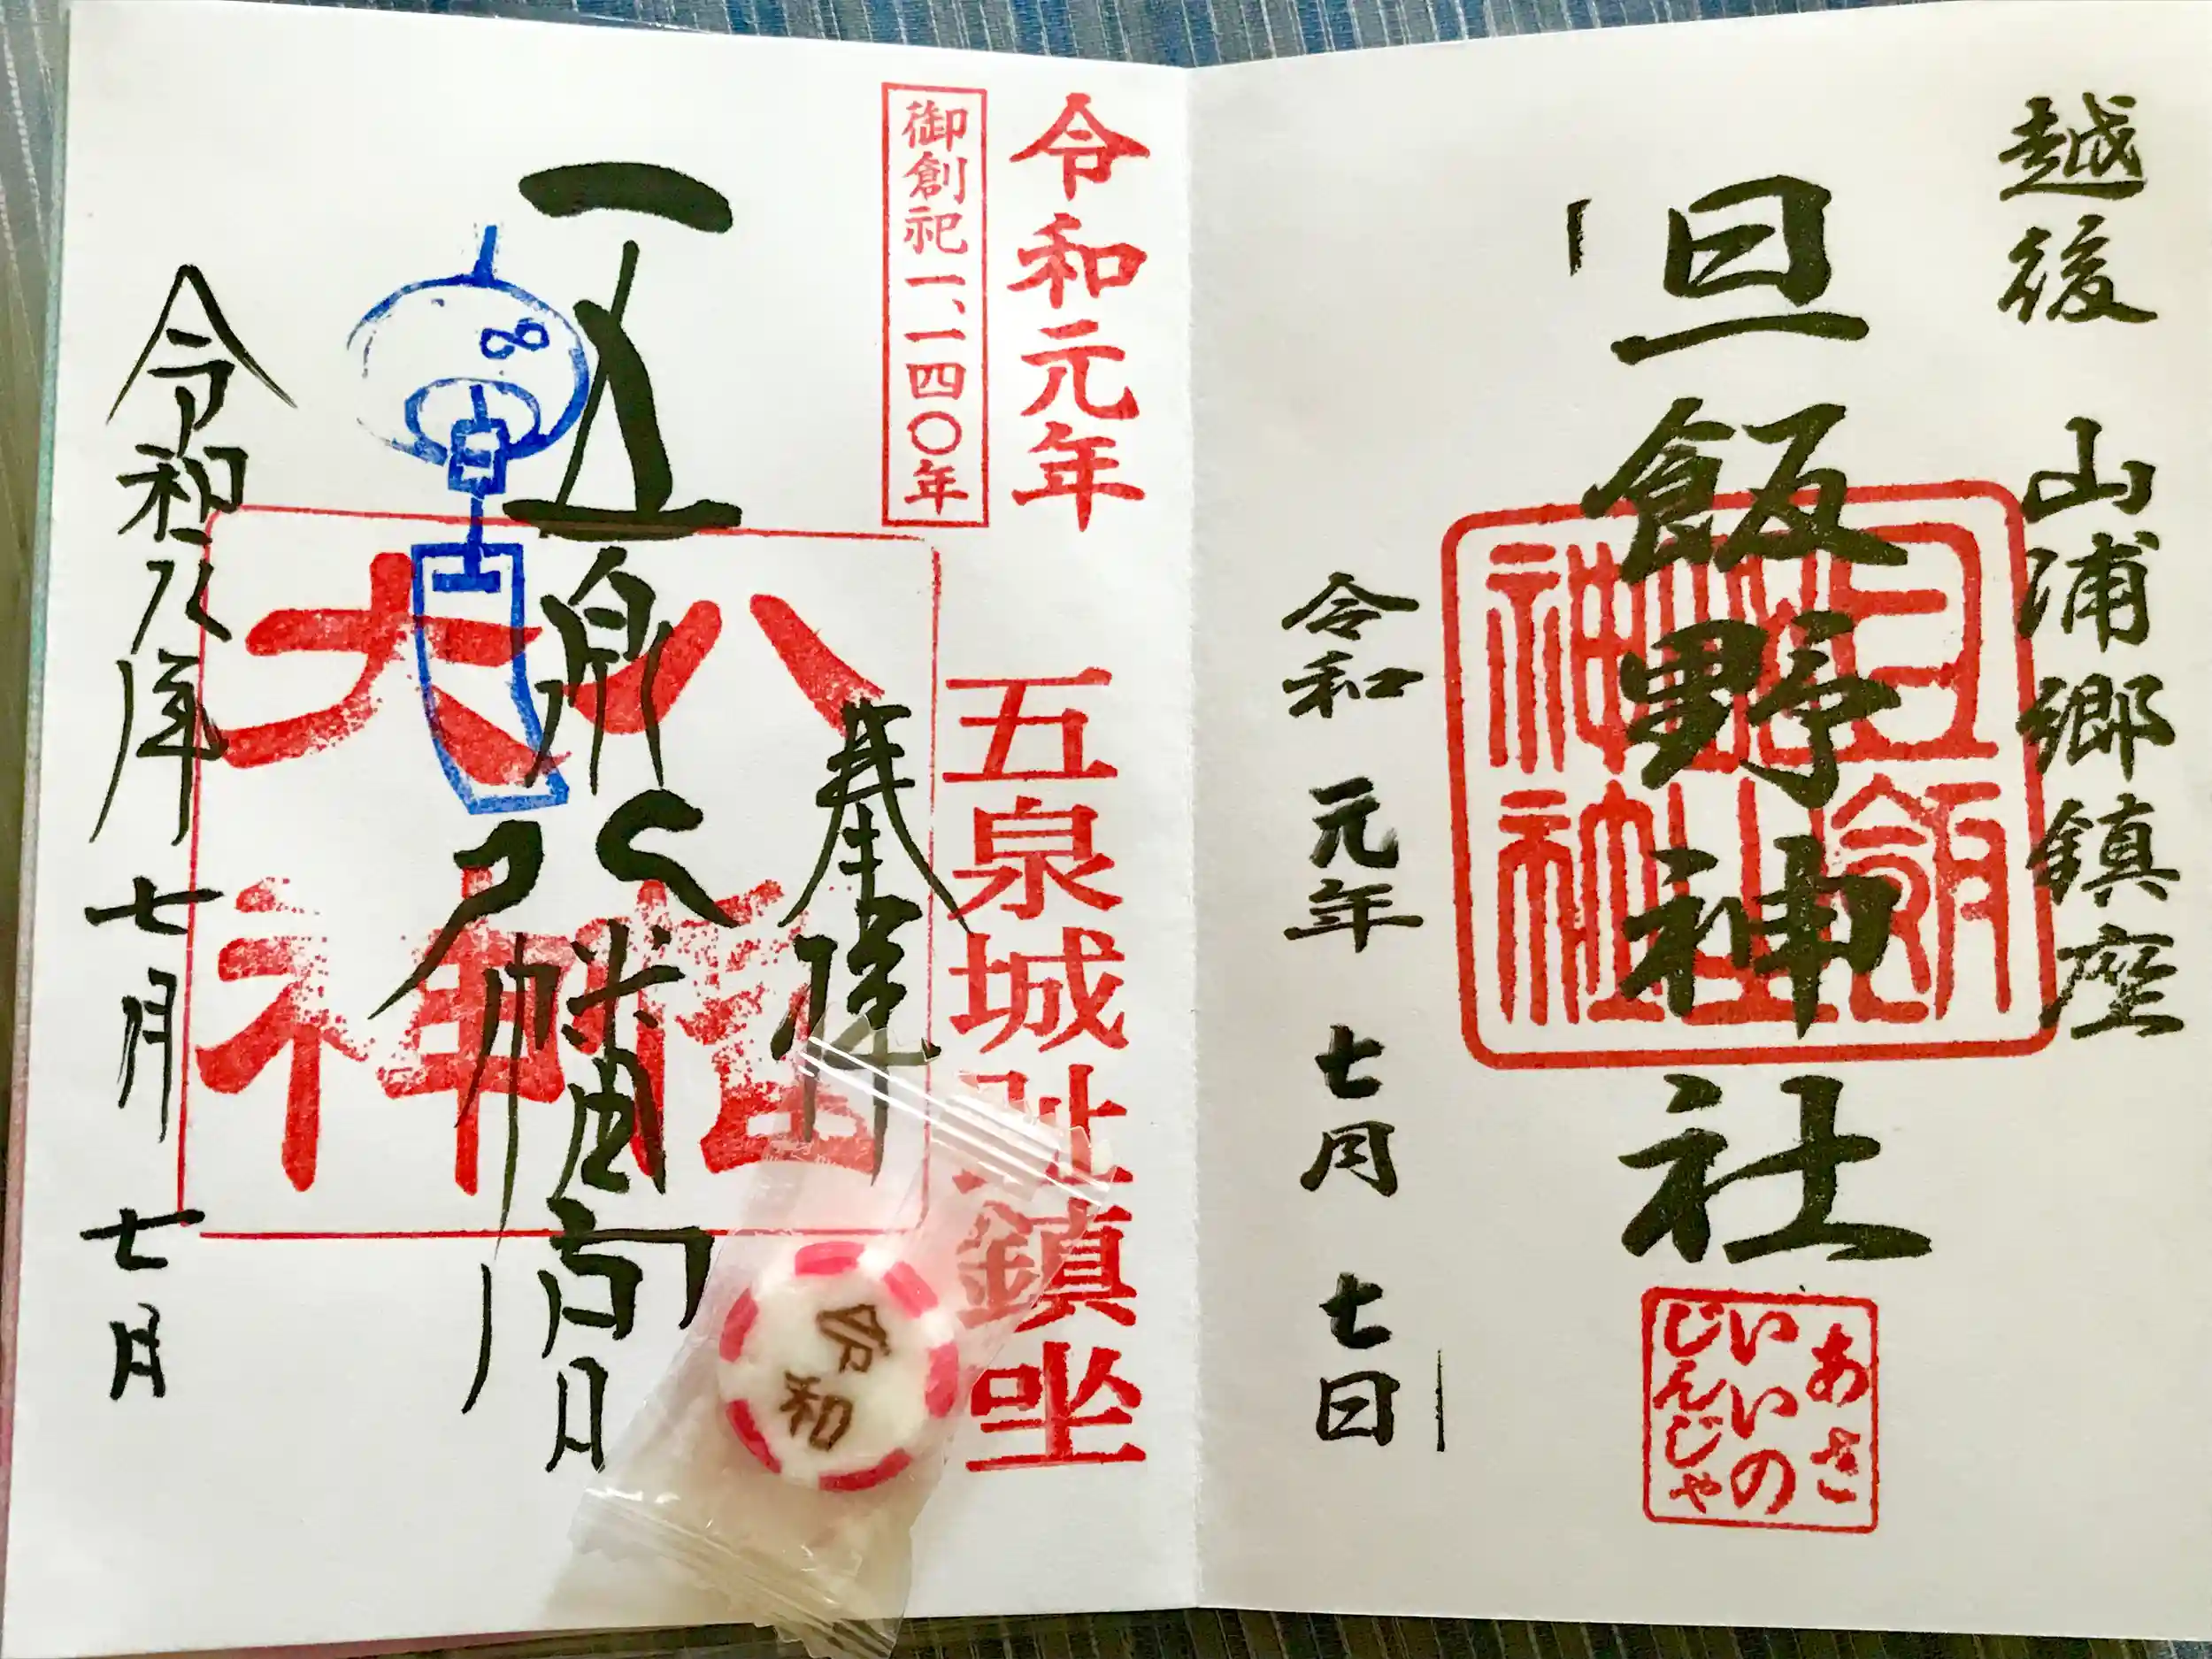 越後 山浦郷鎮座
旦飯野神社
令和 元年 七月 七日
あさ
いいの
じんじゃ
令和元年
五泉城址鎮坐
御創祀一、一四〇年
奉拝
五泉八幡宮
八幡
大神
令和元年 七月 七日
令和